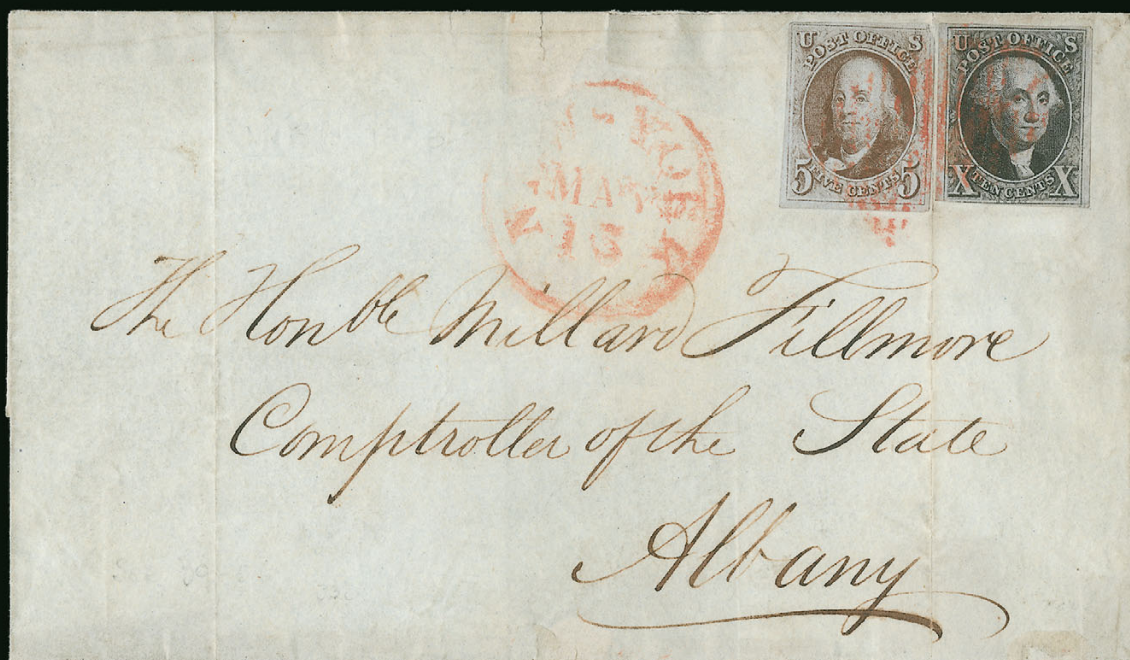 U S
POST OFFICE
5 FIVE CENTS 5
U S
POST OFFICE
X TEN CENTS X
NEW-YORK
MAY
The Honble Millard Fillmore
Comptroller of the State
Albany